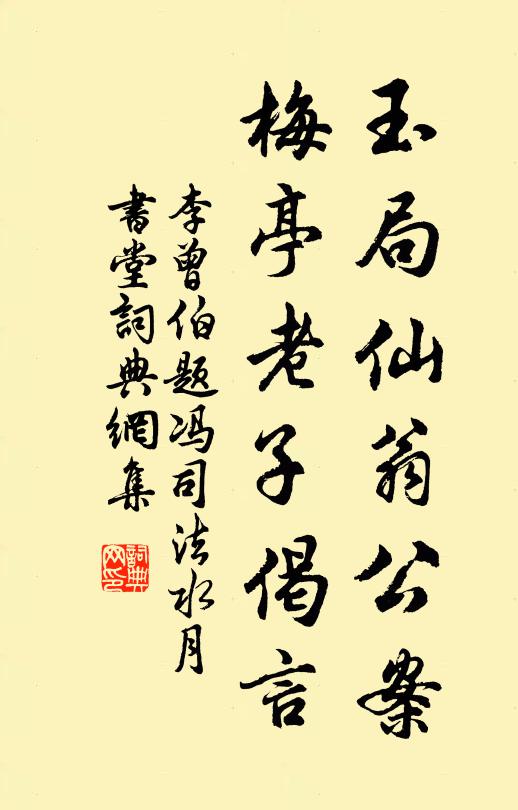 玉局仙翁公案
梅亭老子偈言
李曾伯题冯司法水月
書堂詞典網集
詞典
网印